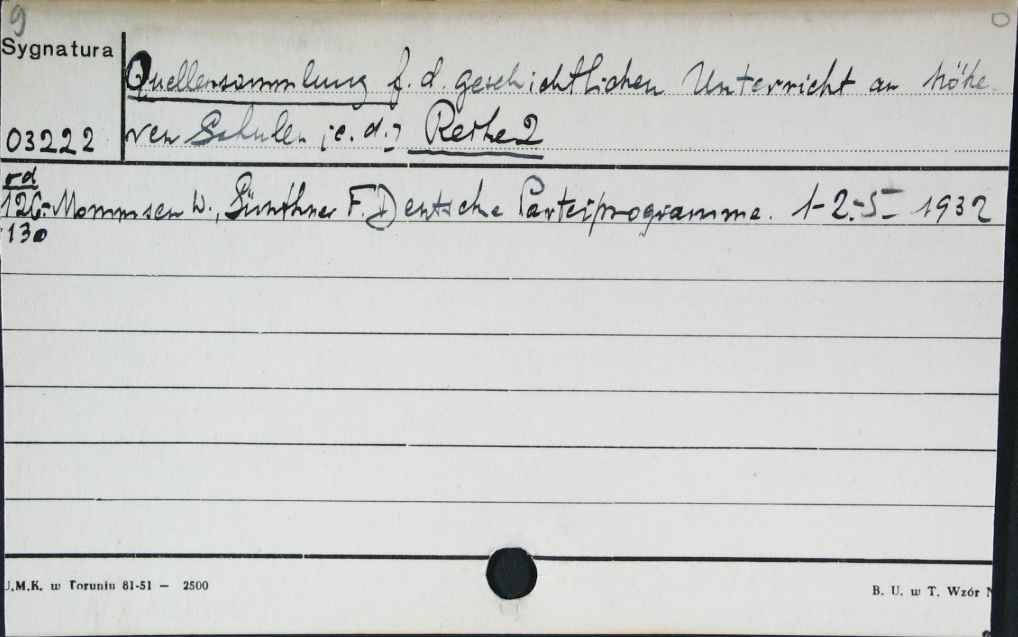 9
Sygnatura
Quellensammlung f. d. geschichtlichen Unterricht an höhe-
03222 ren Schulen Reihe 2
rd
126- Mommsen W., Günther F. Deutsche Parteiprogramme. 1-2.-5- 1932
130
U.M.K. w Toruniu 81-51 — 2500
B. U. w T. Wzór N